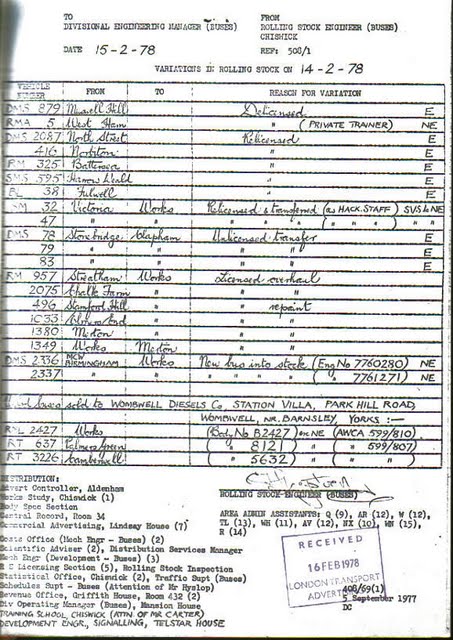 TO FROM
DIVISIONAL ENGINEERING MANAGER (BUSES) ROLLING STOCK ENGINEER (BUSES)
CHISWICK
DATE 15-2-78 REF: 508/1
VARIATIONS IN ROLLING STOCK ON 14-2-78
VEHICLE NUMBER FROM TO REASON FOR VARIATION
DMS 879 Muswell Hill Delicensed E
RMA 5 West Ham " (PRIVATE TRAINER) NE
DMS 2087 North Street Relicensed E
416 Norbiton " E
RM 325 Battersea " E
SMS 595 Harrow Weald " E
BL 38 Fulwell " E
SM 32 Victoria Works Relicensed & transferred (as HACK. STAFF) SVS 4 NE
47 " " " " " " " "
DMS 78 Stonebridge Clapham Unlicensed transfer E
79 " " " " E
83 " " " " E
RM 957 Streatham Works Licensed overhaul
2075 Chalk Farm " " "
496 Stamford Hill " " repaint
" " "
1380 Merton " " "
1349 Works Merton " "
DMS 2336 MCW BIRMINGHAM Works New bus into stock (Eng No 7760280) NE
2337 " " " " " " ( " " 7761271) NE
buses sold to WOMBWELL DIESELS Co, STATION VILLA, PARK HILL ROAD,
WOMBWELL, NR. BARNSLEY, YORKS :—
RML 2427 Works (Body No B2427) NE (AWCA 599/810)
RT 637 Palmers Green ( " 8121 ) " 599/807)
RT 3226 Camberwell ( " 5632 ) "
DISTRIBUTION:
Advert Controller, Aldenham
Works Study, Chiswick (1)
Body Spec Section
Central Record, Room 34
Commercial Advertising, Lindsay House (7)
Costs Office (Mech Engr - Buses) (2)
Scientific Adviser (2), Distribution Services Manager
Mech Engr (Development - Buses) (3)
R E Licensing Section (5), Rolling Stock Inspection
Statistical Office, Chiswick (2), Traffic Supt (Buses)
Schedules Supt - Buses (Attention of Mr Hyslop)
Revenue Office, Griffith House, Room 432 (2)
Div Operating Manager (Buses), Mansion House
TRAINING SCHOOL, CHISWICK (ATTN. OF MR CARTER)
DEVELOPMENT ENGR., SIGNALLING, TELSTAR HOUSE
ROLLING STOCK ENGINEER (BUSES)
AREA ADMIN ASSISTANTS: Q (9), AR (12), W (12),
TL (13), WH (11), AV (12), NX (10), WN (15),
R (14)
RECEIVED
16 FEB 1978
LONDON TRANSPORT
408/69(1)
5 September 1977
DC